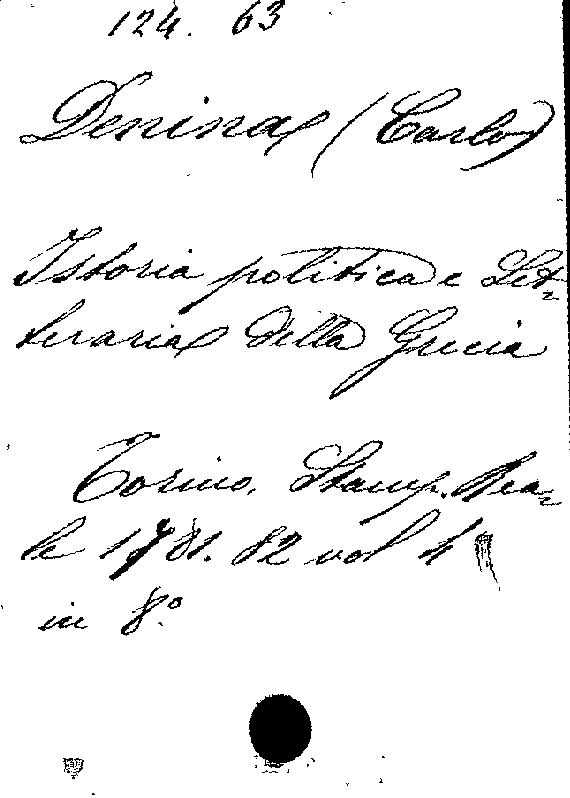 124. 63
Denina (Carlo)
Istoria politica e Let-
teraria della Grecia
Torino, Stamp. Rea-
le 1781. 82 vol 4
in 8.º